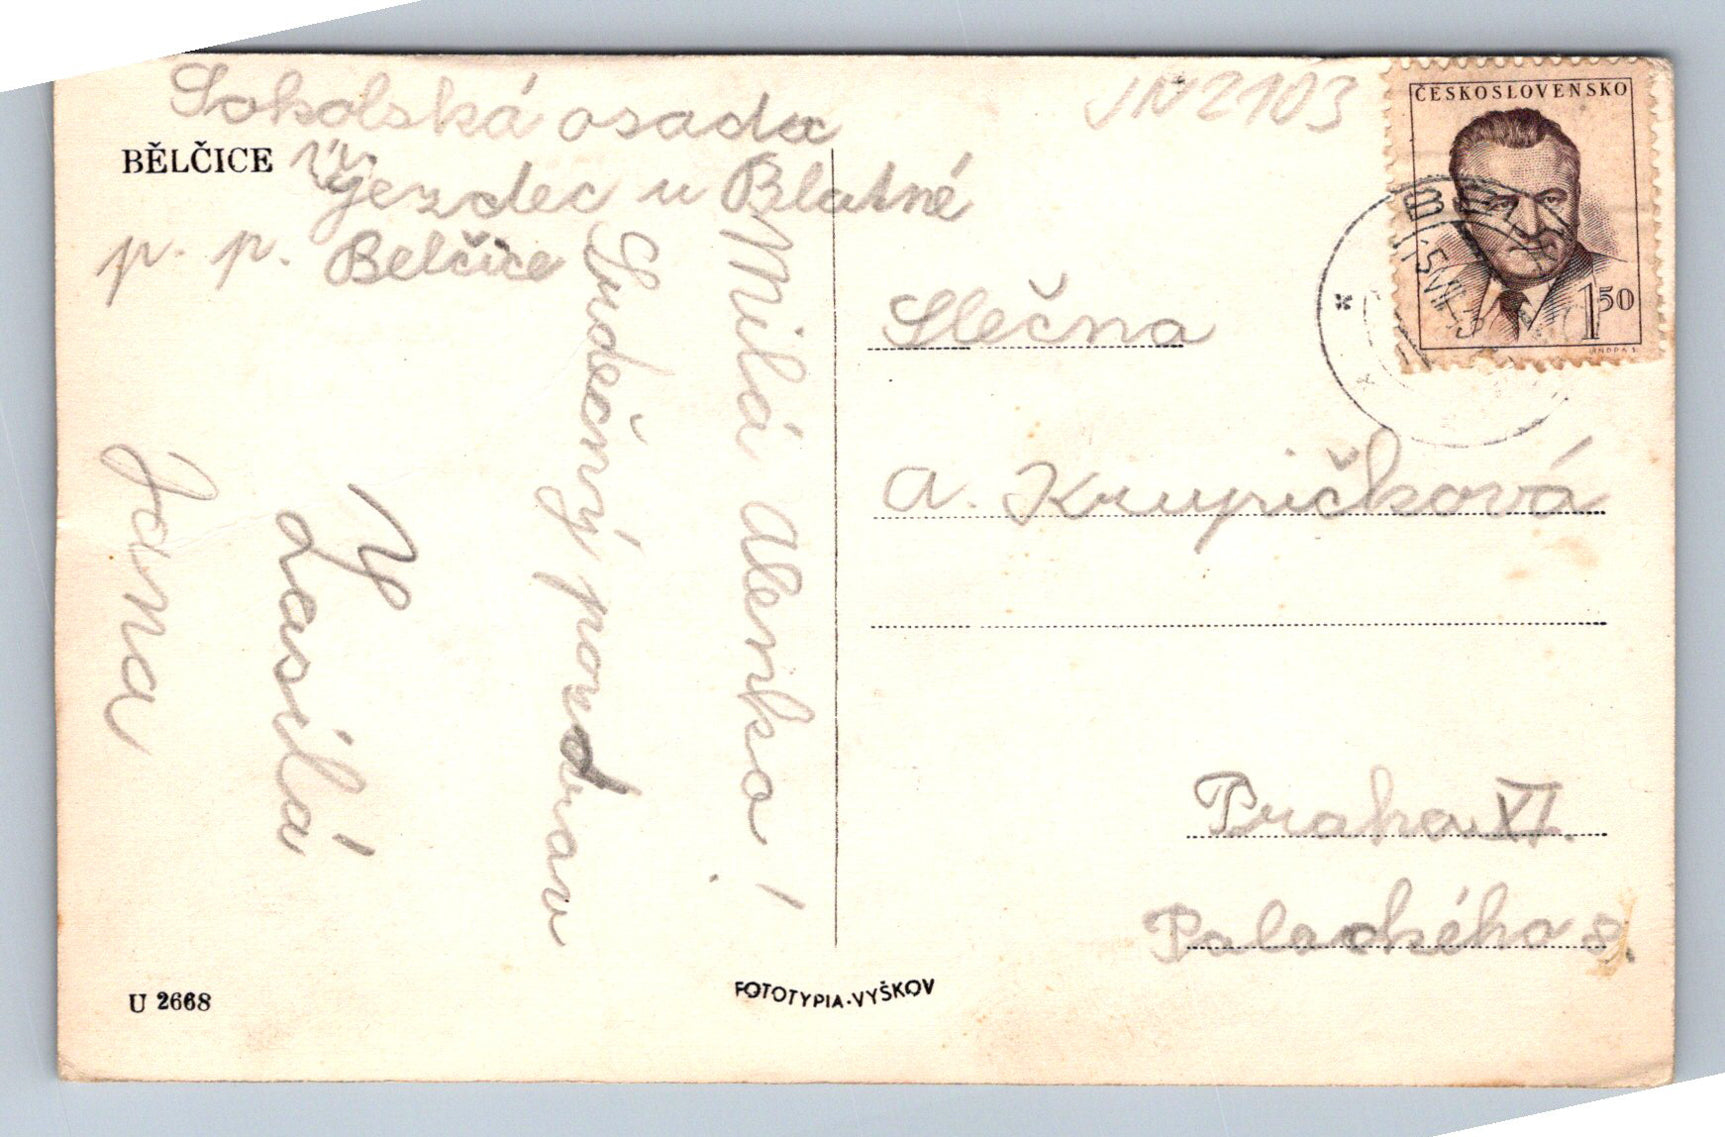 Sokolská osada
BĚLČICE
Újezdec u Blatné
p. p. Belčice
Milá Alenko!
Srdečný pozdrav
Zasílá
Jana
U 2668
FOTOTYPIA-VYŠKOV
JN2103
ČESKOSLOVENSKO
1 50
Slečna
A. Krupičková
Praha XI.
Palackého 8.